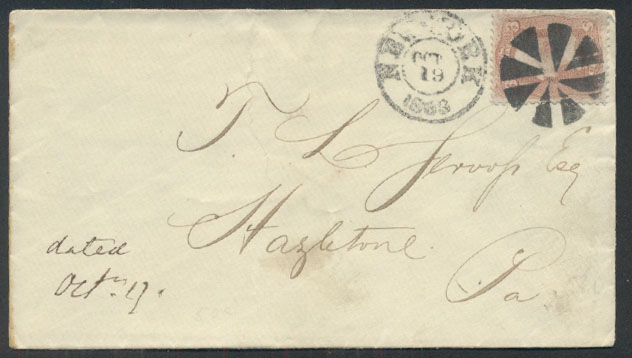 NEW YORK
OCT
19
1863
T. L.
Esq
Hazletone.
Pa
dated
Octr. 17.